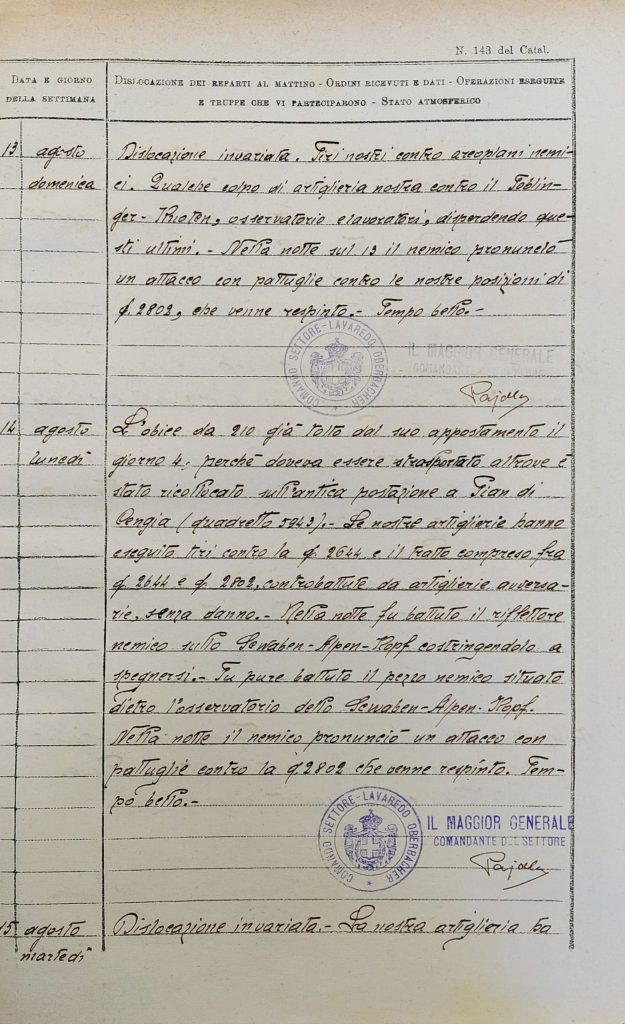 N. 143 del Catal.
DATA E GIORNO
DELLA SETTIMANA
DISLOCAZIONE DEI REPARTI AL MATTINO - ORDINI RICEVUTI E DATI - OPERAZIONI ESEGUITE
E TRUPPE CHE VI PARTECIPARONO - STATO ATMOSFERICO
13 agosto
domenica
Dislocazione invariata. Tiri nostri contro areoplani nemi-
ci. Qualche colpo di artiglieria nostra contro il Toblin-
ger-Knoten, osservatorio e lavoratori, disperdendo que-
sti ultimi. - Nella notte sul 13 il nemico pronunciò
un attacco con pattuglie contro le nostre posizioni di
q. 2802, che venne respinto. - Tempo bello. -
COMANDO SETTORE-LAVAREDO OBERBACHER
IL MAGGIOR GENERALE
14 agosto
lunedì
L'obice da 210 già tolto dal suo appostamento il
giorno 4. perchè doveva essere strasportato altrove è
stato ricollocato sull'antica postazione a Pian di
Cengia (quadretto 5943). - Le nostre artiglierie hanno
eseguito tiri contro la q. 2644 e il tratto compreso fra
q. 2644 e q. 2802, controbattute da artiglierie avversa-
rie, senza danno. - Nella notte fu battuto il riflettore
nemico sullo Sewaben-Alpen-Kopf costringendolo a
spegnersi. - Fu pure battuto il pezzo nemico situato
dietro l'osservatorio dello Sewaben-Alpen-Kopf.
Nella notte il nemico pronunciò un attacco con
pattuglie contro la q. 2802 che venne respinto. Tem-
po bello. -
COMANDO SETTORE-LAVAREDO OBERBACHER
IL MAGGIOR GENERALE
COMANDANTE DEL SETTORE
15 agosto
martedì
Dislocazione invariata. - La nostra artiglieria ha